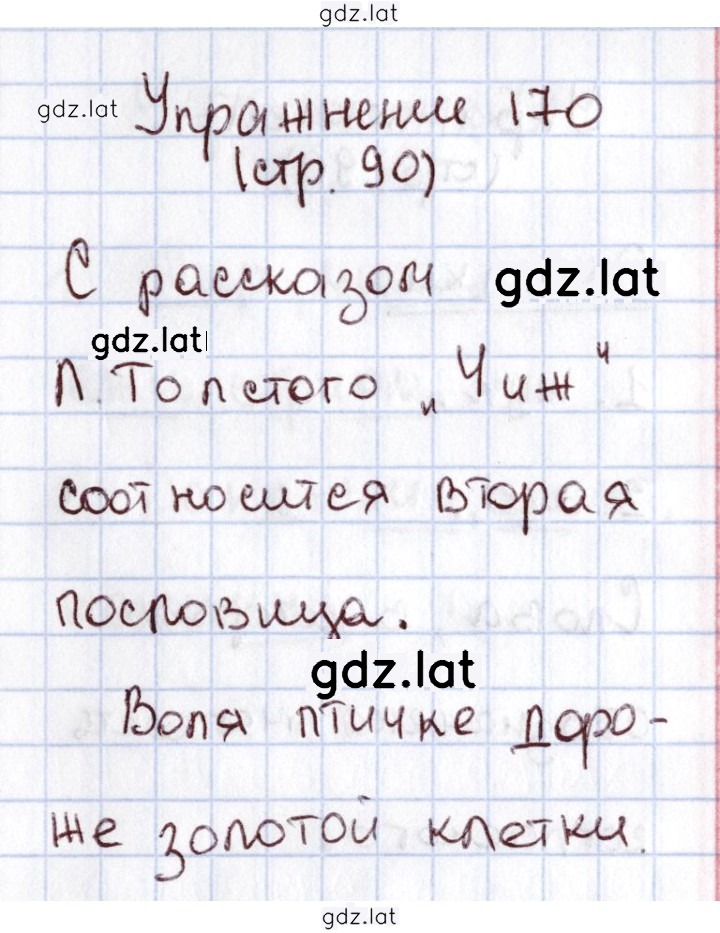 gdz.lat
gdz.lat
Упражнение 170
(стр. 90)
С рассказом
gdz.lat
gdz.lat
Л. Толстого „Чиж“
соотносится вторая
пословица.
gdz.lat
Воля птичке доро-
же золотой клетки.
gdz.lat